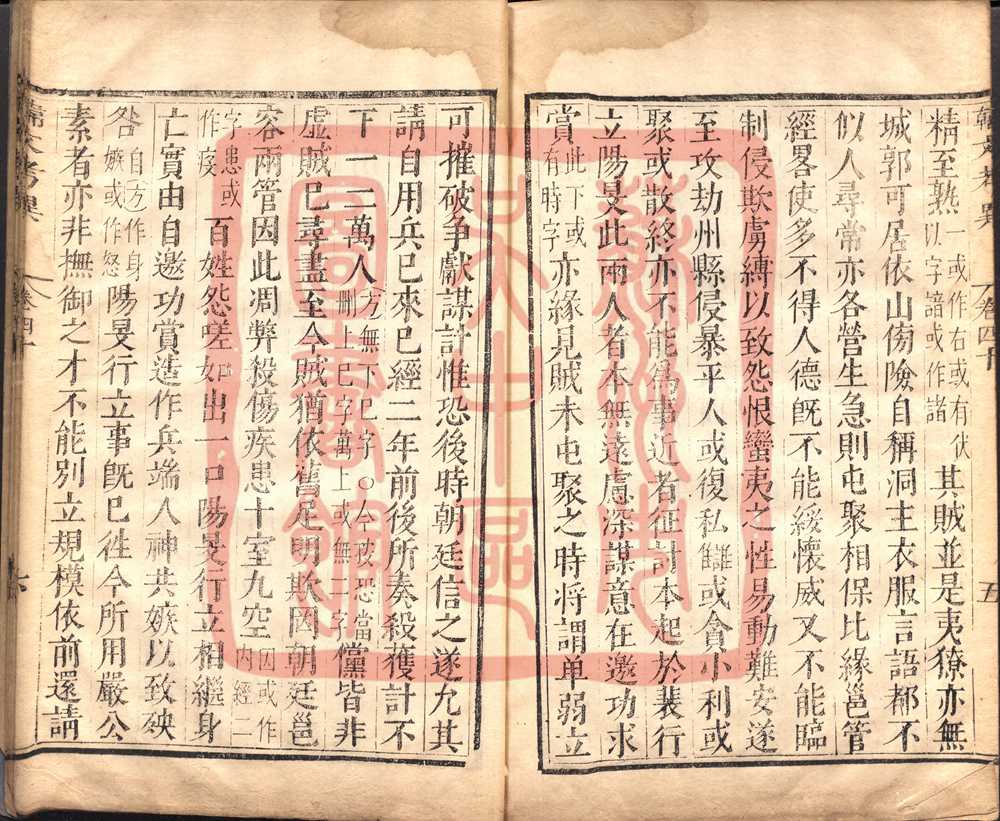 精至熟一或作右或有伏以字諳或作諸其賊並是夷獠亦無
城郭可居依山傍險自稱洞主衣服言語都不
似人尋常亦各營生急則屯聚相保比緣邕管
經略使多不得人德旣不能綏懷威又不能臨
制侵欺虜縛以致怨恨蠻夷之性易動難安遂
至攻劫州縣侵暴平人或復私讎或貪小利或
聚或散終亦不能爲事近者征討本起於裴行
立陽旻此兩人者本無遠慮深謀意在邀功求
賞此下或有時字亦緣見賊未屯聚之時将謂单弱立
可摧破争獻謀計惟恐後時朝廷信之遂允其
請自用兵已來已經二年前後所奏殺獲計不
下一二萬人方無下已字○今按恐當刪上已字萬上或無二字儻皆非
虛賊已尋盡至今賊猶依舊足明欺罔朝廷邕
容兩管因此凋弊殺傷疾患十室九空因或作内經二
字患或作疫百姓怨嗟如出一口陽旻行立相繼身
亡實由自邀功賞造作兵端人神共嫉以致殃
咎自方作身嫉或作怒陽旻行立事旣已徃今所用嚴公
素者亦非撫御之才不能別立規模依前還請
韓文考異
卷四十
五
韓文考異
卷四十
六